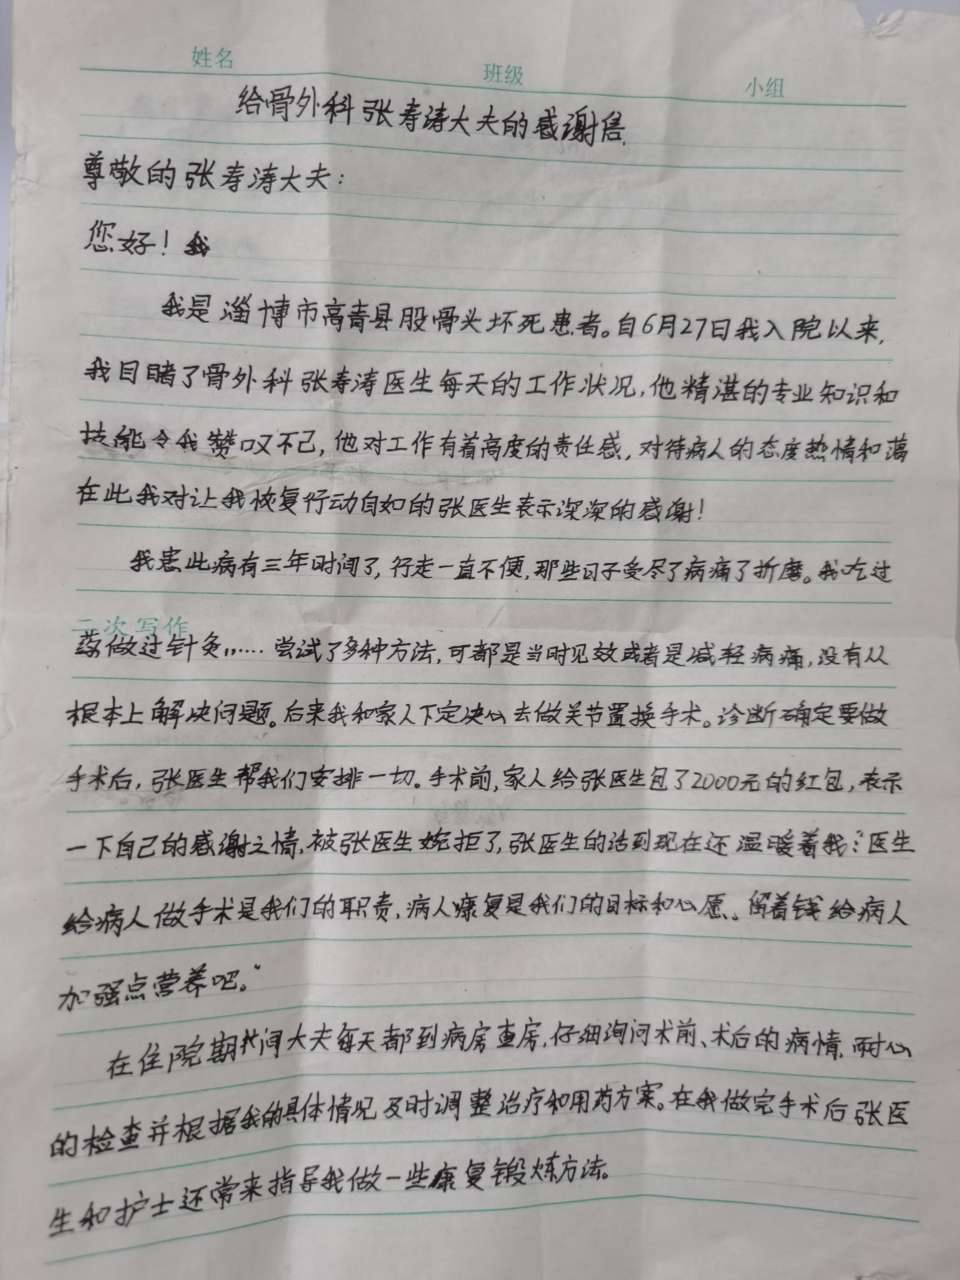 姓名 班级 小组
给骨外科张寿涛大夫的感谢信
尊敬的张寿涛大夫：
您好！我
我是淄博市高青县股骨头坏死患者。自6月27日我入院以来，
我目睹了骨外科张寿涛医生每天的工作状况，他精湛的专业知识和
技能令我赞叹不已，他对工作有着高度的责任感，对待病人的态度热情和蔼
在此我对让我恢复行动自如的张医生表示深深的感谢！
我患此病有三年时间了，行走一直不便，那些日子受尽了病痛了折磨。我吃过
二次写作
药做过针灸，……尝试了多种方法，可都是当时见效或者是减轻病痛，没有从
根本上解决问题。后来我和家人下定决心去做关节置换手术。诊断确定要做
手术后，张医生帮我们安排一切。手术前，家人给张医生包了2000元的红包，表示
一下自己的感谢之情，被张医生婉拒了，张医生的话到现在还温暖着我：“医生
给病人做手术是我们的职责，病人康复是我们的目标和心愿。留着钱给病人
加强点营养吧。”
在住院期间大夫每天都到病房查房，仔细询问术前、术后的病情，耐心
的检查并根据我的具体情况及时调整治疗和用药方案。在我做完手术后张医
生和护士还常来指导我做一些康复锻炼方法。